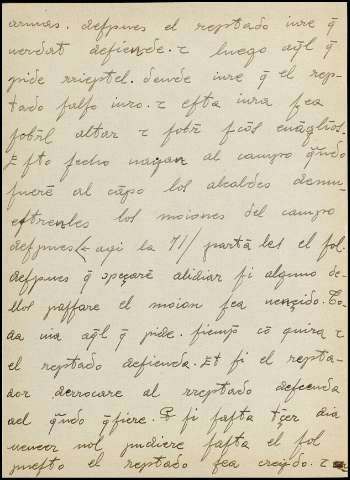 armas. defpues el reptado iure q̃
uerdat defiende. ⁊ luego aq̃l q̃
pide rrieptel. dende iure q̃ el rep-
tado falfo iuro. ⁊ efta iura fea
fobr̃l altar ⁊ fobr̃ fc̃os euãglios.
Efto fecho uayan al campo q̃ndo
fuerẽ al cãpo los alcaldes demu-
eftrenles los moiones del campo
defpues aqi la 71/ partã les el fol.
defpues q̃ alidiar fi alguno de-
llos paffare el moion fea uençido. To-
da uia aq̃l q̃ pide. fiemp̃ cõ quira ⁊
el reptado defienda. Et fi el repta-
dor derrocare al rreptado defcenda
del q̃ndo q̃fiere. Et fi fafta t̃çer dia
uencer nol pudiere fafta el fol
puefto el reptado fea creydo. ⁊